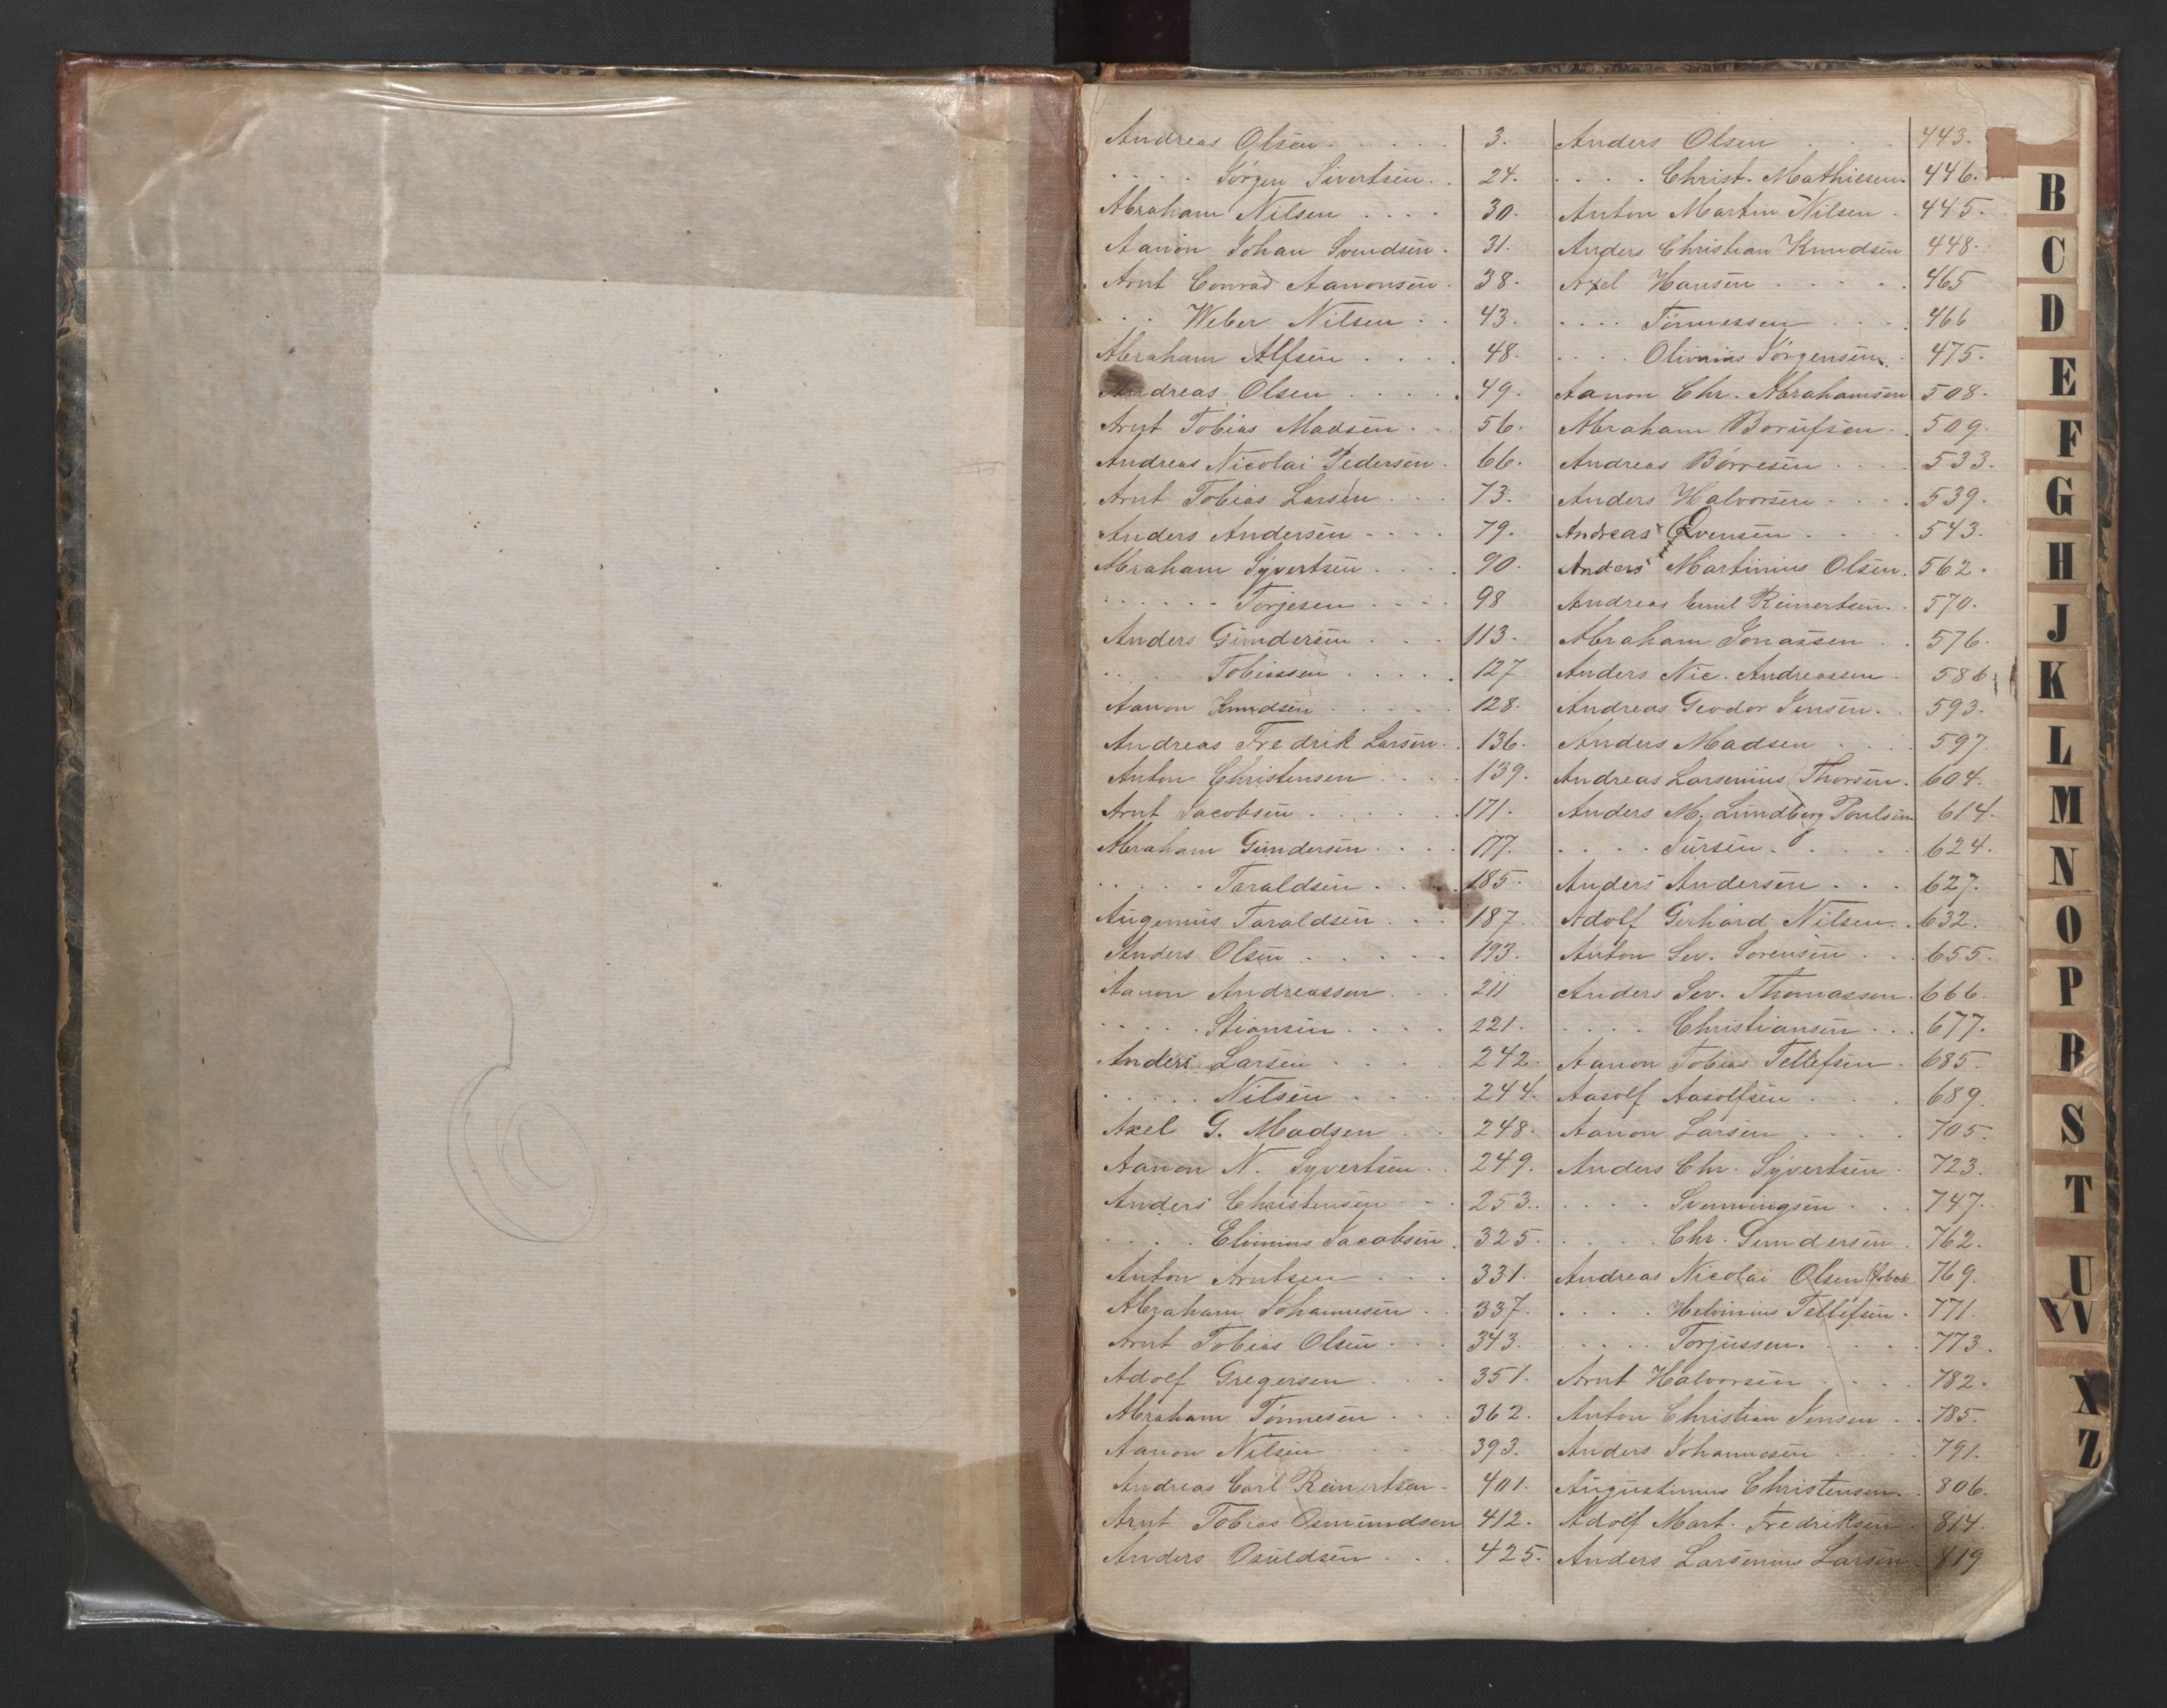 Andreas Olsen . . . . . 3.
. . . . Jørgen Sivertsen . . 24.
Abraham Nilsen . . . . 30.
Aanon Johan Svendsen . 31.
Arnt Conrad Aanonsen . 38.
. . . Weber Nilsen . . 43.
Abraham Alfsen . . . . 48.
Andreas Olsen . . . . . 49.
Arnt Tobias Madsen . . . 56.
Andreas Nicolai Pedersen . 66.
Arnt Tobias Larsen . . . 73.
Anders Andersen . . . . 79.
Abraham Syvertsen . . . . 90.
. . . . . . Torjesen . . . . 98
Anders Gundersen . . . 113.
. . . . Tobiassen . . . . . 127.
Aanon Knudsen . . . . . 128.
Andreas Fredrik Larsen . . 136.
Anton Christensen . . . . 139.
Arnt Jacobsen . . . . . . 171.
Abraham Gundersen . . . . 177.
. . . . . Taraldsen . . . . 185.
Augenius Taraldsen . . . 187.
Anders Olsen . . . . . 193.
Aanon Andreassen . . . 211
. . . . . Stiansen . . . . 221.
Anders Larsen . . . . 242.
. . . . . Nilsen . . . . 244.
Axel G. Madsen . . . 248.
Aanon N. Syvertsen . . 249.
Anders Christensen . . . 253.
. . . . Elvinius Jacobsen . 325.
Anton Arntsen . . . . 331.
Abraham Johannesen . . 337.
Arnt Tobias Olsen . . . 343.
Adolf Gregersen . . . 351.
Abraham Tønnesen . . . 362.
Aanon Nilsen . . . . 393.
Andreas Carl Reinertsen . 401.
Arnt Tobias Osmundsen 412.
Anders Osuldsen . . . 425.
Anders Olsen . . . 443.
. . . . Christ. Mathiesen . 446.
Anton Martin Nilsen . 445.
Anders Christian Knudsen 448.
Axel Hansen . . . . . 465
. . . . Tønnessen . . . . 466
. . . . Olivinius Jørgensen . 475.
Aanon Chr. Abrahamsen 508.
Abraham Borufsen . . 509.
Andreas Børresen . . . . 533.
Anders Halvorsen . . . . 539.
Andreas Qvensen . . . . 543.
Anders Martinius Olsen . 562.
Andreas Emil Reinertsen . . 570.
Abraham Jonassen . . 576.
Anders Nic. Andreassen . 586
Andreas Teodor Jensen . . 593.
Anders Madsen . . . . 597
Andreas Larsenius Thorsen . 604.
Anders M. Lundberg Poulsen 614.
. . . . Jursen . . . . . 624.
Anders Andersen . . . 627.
Adolf Gerhard Nilsen . . 632.
Anton Sev. Sørensen . . . 655.
Anders Sev. Thomassen . 666.
. . . . Christiansen . . . 677.
Aanon Tobias Tellefsen . 685.
Aasolf Aasolfsen . . . . 689.
Aanon Larsen . . . . 705.
Anders Chr. Syvertsen . 723.
. . . . Svenningsen . . . 747.
. . . . Chr. Gundersen . 762.
Andreas Nicolai Olsen 769.
. . . . Helvinius Tellefsen . 771.
. . . . . Torjussen . . . . 773.
Arnt Halvorsen . . . . 782.
Anton Christian Jensen . . 785.
Anders Johannesen . . . . 791.
Augustinius Christensen . . 806.
Adolf Mart. Fredriksen . 814.
Anders Larsenius Larsen . 819
B
C
D
E
F
G
H
J
K
L
M
N
O
P
R
S
T
U
VV
X
Z